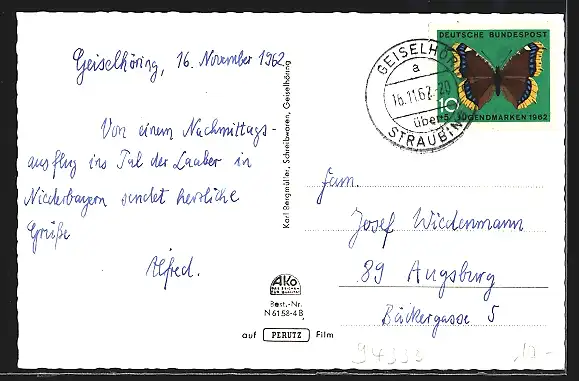 Geiselhöring, 16. November 1962
Von einem Nachmittags-
ausflug ins Tal der Laaber in
Niederbayern sendet herzliche
Grüße
Alfred.
Karl Bergmüller, Schreibwaren, Geiselhöring
AKO
DAS ZEICHEN
FÜR QUALITÄT
Best.-Nr.
N 6158-4 B
auf PERUTZ Film
DEUTSCHE BUNDESPOST
10
+5 JUGENDMARKEN 1962
GEISELHÖRING
a
16.11.62.-20
über
STRAUBING
Fam.
Josef Wiedenmann
89 Augsburg
Bäckergasse 5
94333
10.-